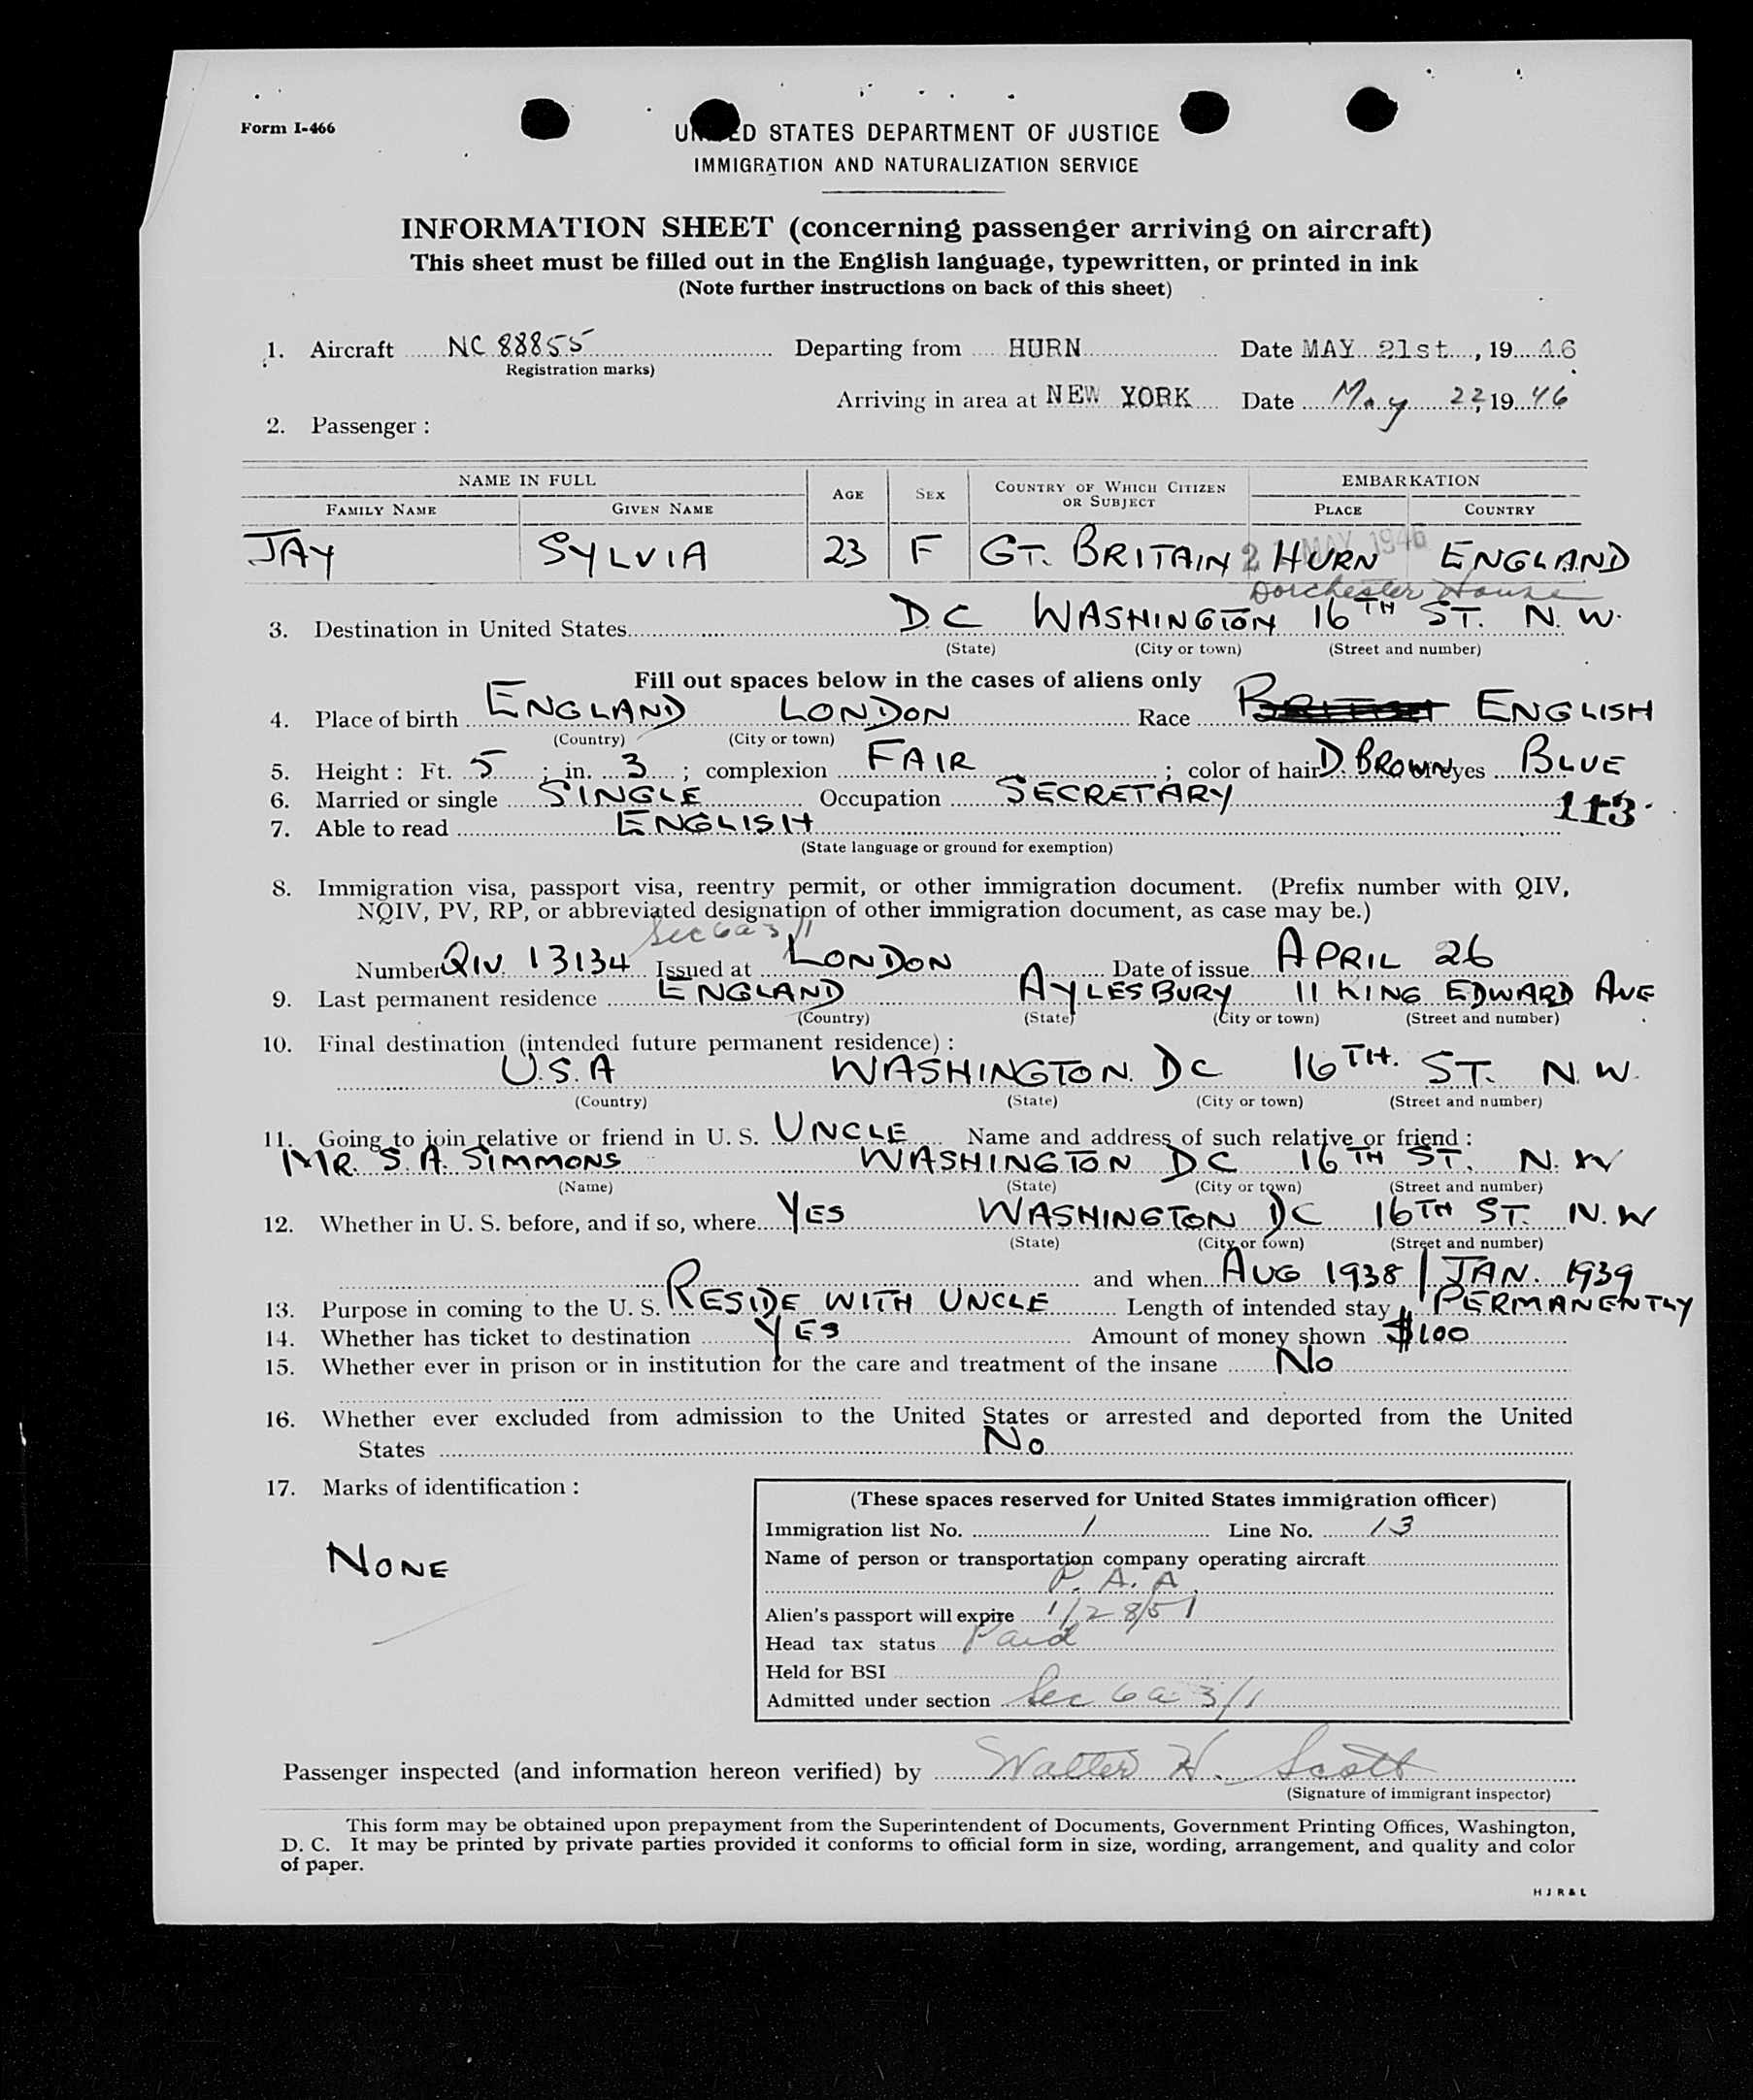 Form I-466
UNITED STATES DEPARTMENT OF JUSTICE
IMMIGRATION AND NATURALIZATION SERVICE
INFORMATION SHEET (concerning passenger arriving on aircraft)
This sheet must be filled out in the English language, typewritten, or printed in ink
(Note further instructions on back of this sheet)
1. Aircraft NC 88855 Departing from HURN Date MAY 21st, 19 46
Registration marks)
Arriving in area at NEW YORK Date May 22, 19 46
2. Passenger :
NAME IN FULL EMBARKATION
FAMILY NAME GIVEN NAME AGE SEX COUNTRY OF WHICH CITIZEN OR SUBJECT PLACE COUNTRY
2 MAY 1946
JAY SYLVIA 23 F GT. BRITAIN HURN ENGLAND
Dorchester House
3. Destination in United States D.C WASHINGTON 16TH ST. N.W.
(State) (City or town) (Street and number)
Fill out spaces below in the cases of aliens only
4. Place of birth ENGLAND LONDON Race BRITISH ENGLISH
(Country) (City or town)
5. Height : Ft. 5 ; in. 3 ; complexion FAIR ; color of hair D. BROWN eyes BLUE
6. Married or single SINGLE Occupation SECRETARY
113.
7. Able to read ENGLISH
(State language or ground for exemption)
8. Immigration visa, passport visa, reentry permit, or other immigration document. (Prefix number with QIV,
NQIV, PV, RP, or abbreviated designation of other immigration document, as case may be.)
Sec 6a 3/1
Number QIV. 13134 Issued at LONDON Date of issue APRIL 26
9. Last permanent residence ENGLAND AYLESBURY 11 KING EDWARD AVE
(Country) (State) (City or town) (Street and number)
10. Final destination (intended future permanent residence) :
U.S.A WASHINGTON. DC 16TH. ST. N.W.
(Country) (State) (City or town) (Street and number)
11. Going to join relative or friend in U. S. UNCLE Name and address of such relative or friend :
MR. S. A. SIMMONS WASHINGTON DC 16TH ST. N.W
(Name) (State) (City or town) (Street and number)
12. Whether in U. S. before, and if so, where YES WASHINGTON DC 16TH ST. N.W
(State) (City or town) (Street and number)
and when AUG 1938 / JAN. 1939
13. Purpose in coming to the U. S. RESIDE WITH UNCLE Length of intended stay PERMANENTLY
14. Whether has ticket to destination YES Amount of money shown $100
15. Whether ever in prison or in institution for the care and treatment of the insane NO
16. Whether ever excluded from admission to the United States or arrested and deported from the United
States NO
17. Marks of identification :
NONE
(These spaces reserved for United States immigration officer)
Immigration list No. 1 Line No. 13
Name of person or transportation company operating aircraft
P. A. A.
Alien's passport will expire 1/28/51
Head tax status Paid
Held for BSI
Admitted under section Sec 6a 3/1
Passenger inspected (and information hereon verified) by Walter H. Scott
(Signature of immigrant inspector)
This form may be obtained upon prepayment from the Superintendent of Documents, Government Printing Offices, Washington,
D. C. It may be printed by private parties provided it conforms to official form in size, wording, arrangement, and quality and color
of paper.
H J R & L